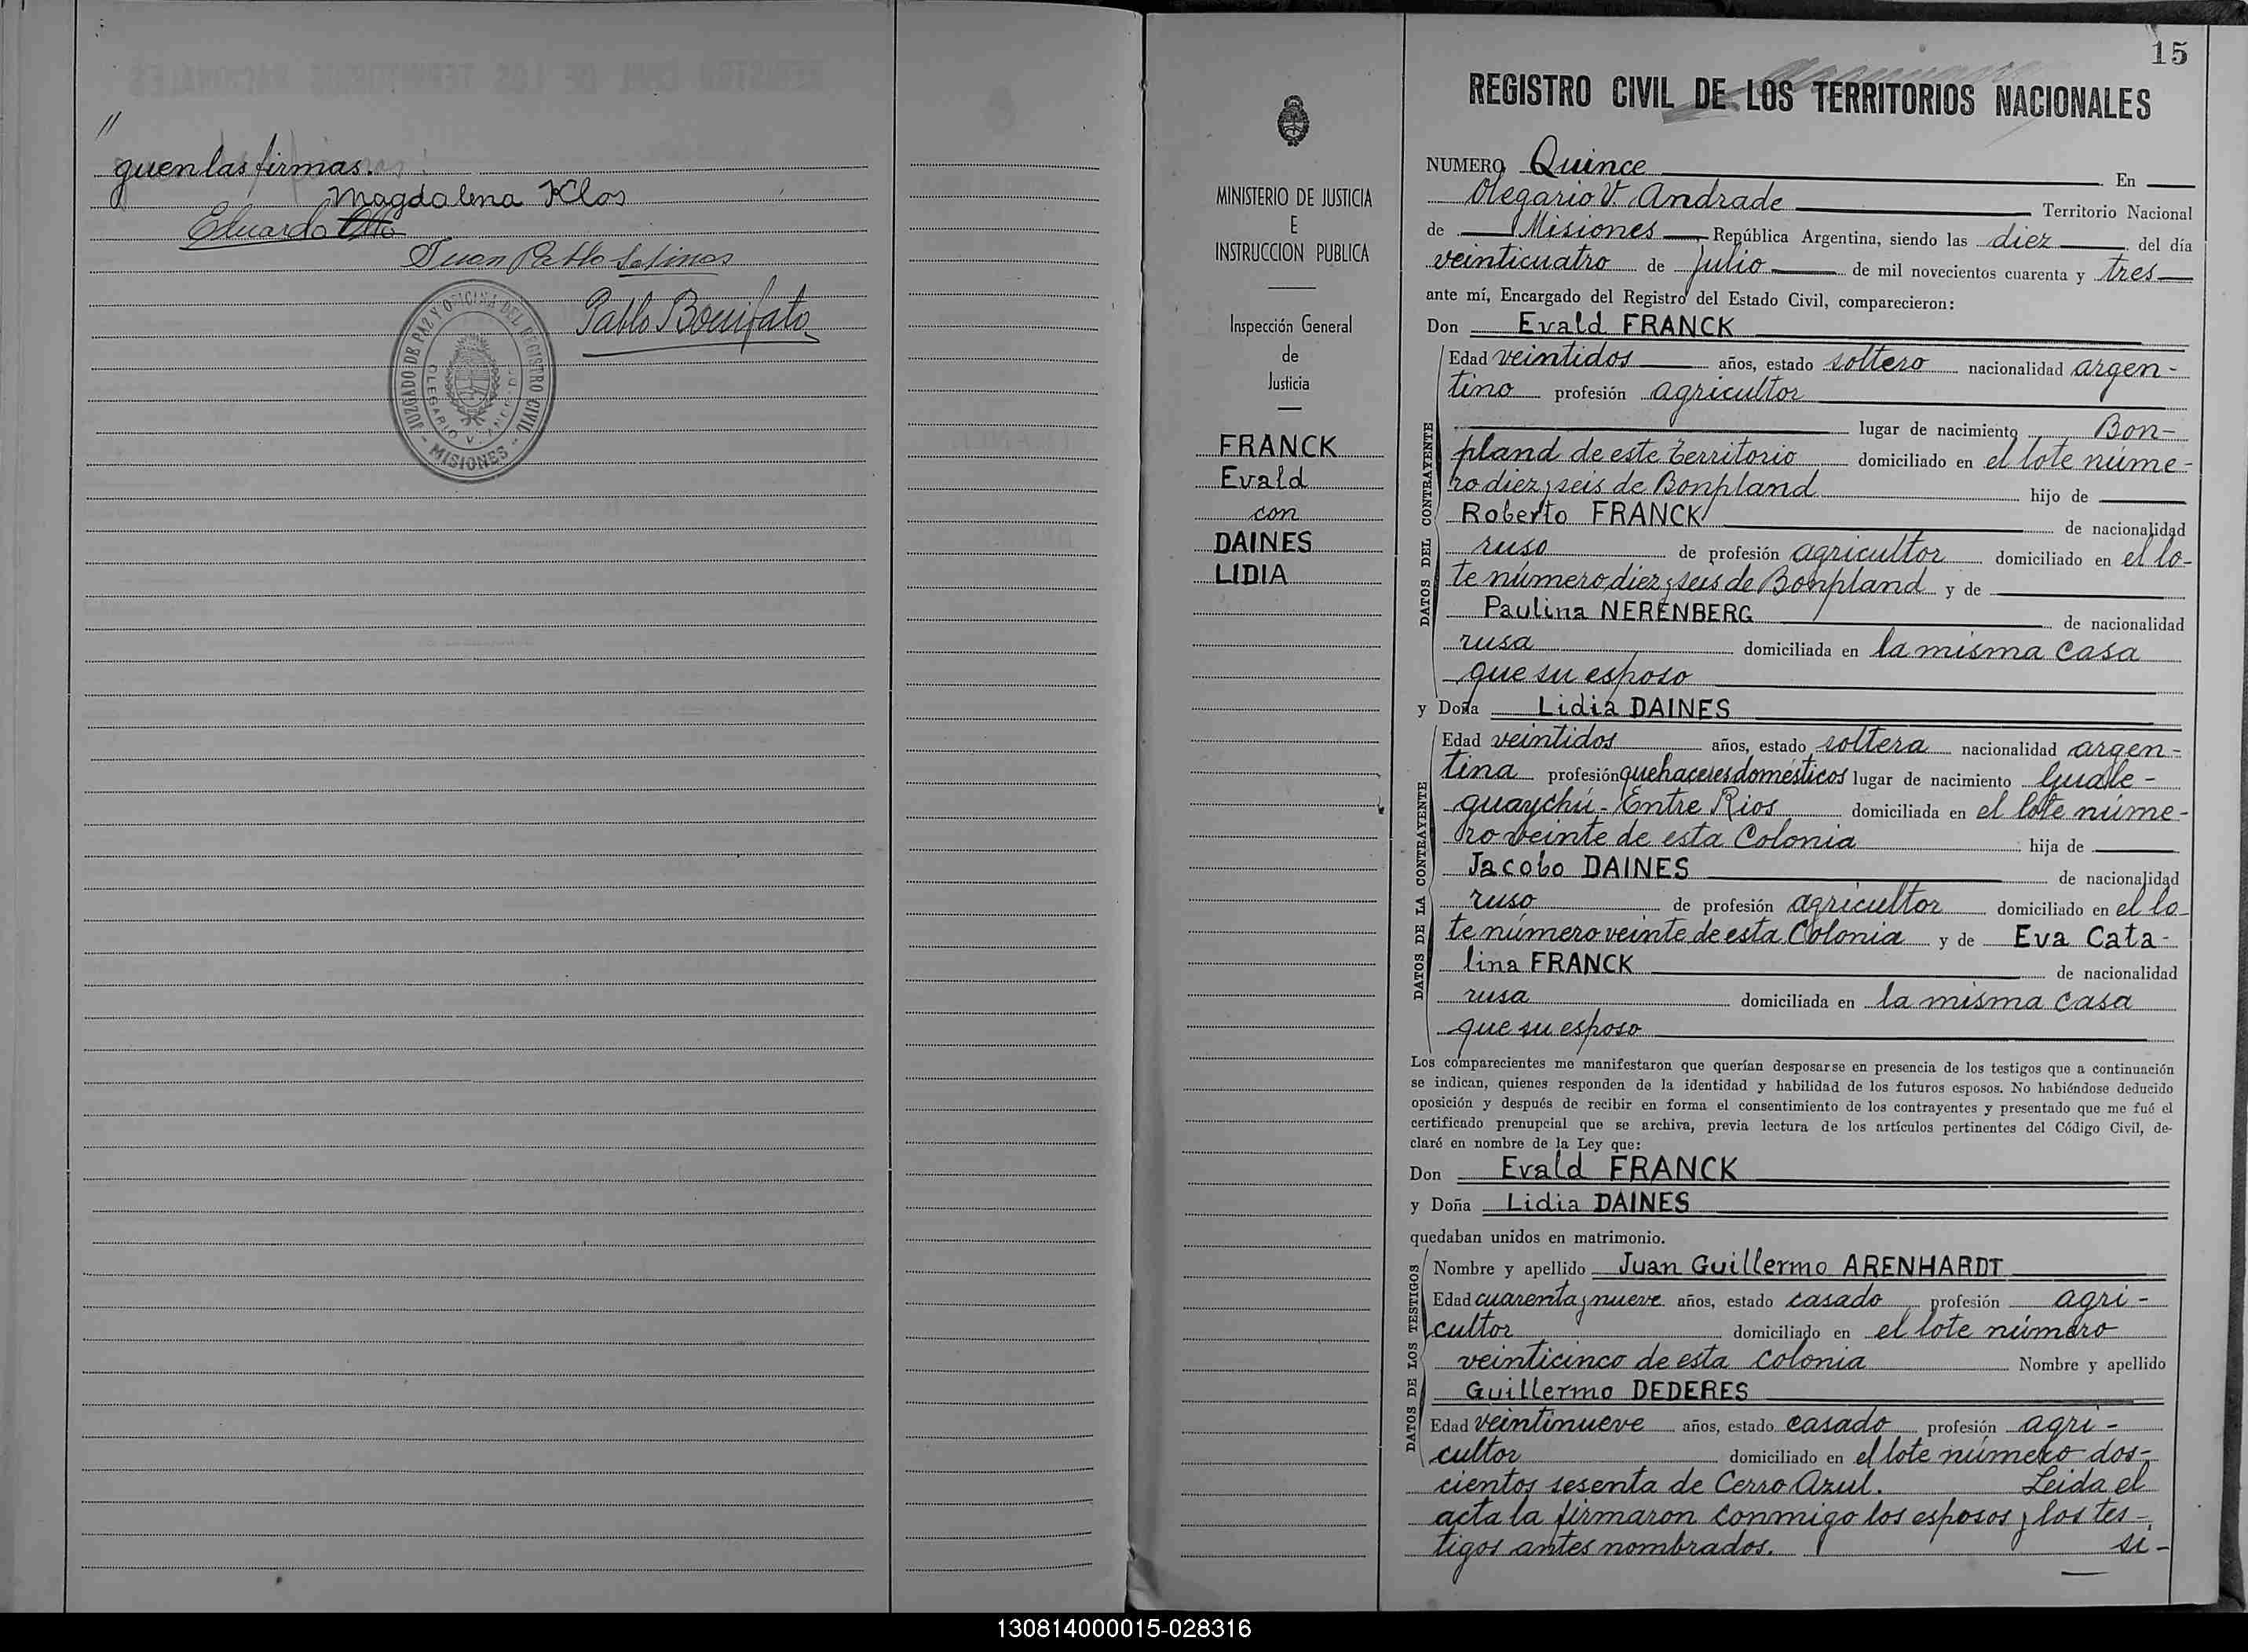 "
guen las firmas.
Magdalena Klos
Eduardo Otto
Juan Pablo Salinas
Pablo Bonifato
JUZGADO DE PAZ Y OFICINA DEL REGISTRO CIVIL
OLEGARIO V. ANDRADE
- MISIONES -
MINISTERIO DE JUSTICIA
E
INSTRUCCION PUBLICA
Inspección General
de
Justicia
FRANCK
Evald
con
DAINES
LIDIA
15
REGISTRO CIVIL DE LOS TERRITORIOS NACIONALES
NUMERO Quince En
Olegario V. Andrade Territorio Nacional
de Misiones República Argentina, siendo las diez del día
veinticuatro de Julio de mil novecientos cuarenta y tres
ante mí, Encargado del Registro del Estado Civil, comparecieron:
Don Evald FRANCK
DATOS DEL CONTRAYENTE
Edad veintidos años, estado soltero nacionalidad argen-
tino profesión agricultor
lugar de nacimiento Bon-
pland de este territorio domiciliado en el lote núme-
ro diez y seis de Bonpland hijo de
Roberto FRANCK de nacionalidad
ruso de profesión agricultor domiciliado en el lo-
te número diez y seis de Bonpland y de
Paulina NERENBERG de nacionalidad
rusa domiciliada en la misma casa
que su esposo
y Doña Lidia DAINES
DATOS DE LA CONTRAYENTE
Edad veintidos años, estado soltera nacionalidad argen-
tina profesión quehaceres domésticos lugar de nacimiento Guale-
guaychú - Entre Rios domiciliada en el lote núme-
ro veinte de esta Colonia hija de
Jacobo DAINES de nacionalidad
ruso de profesión agricultor domiciliado en el lo-
te número veinte de esta Colonia y de Eva Cata-
lina FRANCK de nacionalidad
rusa domiciliada en la misma casa
que su esposo
Los comparecientes me manifestaron que querían desposarse en presencia de los testigos que a continuación
se indican, quienes responden de la identidad y habilidad de los futuros esposos. No habiéndose deducido
oposición y después de recibir en forma el consentimiento de los contrayentes y presentado que me fué el
certificado prenupcial que se archiva, previa lectura de los artículos pertinentes del Código Civil, de-
claré en nombre de la Ley que:
Don Evald FRANCK
y Doña Lidia DAINES
quedaban unidos en matrimonio.
DATOS DE LOS TESTIGOS
Nombre y apellido Juan Guillermo ARENHARDT
Edad cuarenta y nueve años, estado casado profesión agri-
cultor domiciliado en el lote número
veinticinco de esta colonia Nombre y apellido
Guillermo DEDERES
Edad veintinueve años, estado casado profesión agri-
cultor domiciliado en el lote número dos-
cientos sesenta de Cerro Azul. Leida el
acta la firmaron conmigo los esposos y los tes-
tigos antes nombrados. si-
130814000015-028316